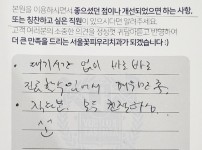 본원을 이용하시면서 좋으셨던 점이나 개선되었으면 하는 사항,
또는 칭찬하고 싶은 직원이 있으시다면 알려주세요.
고객 여러분의 소중한 의견을 경청하고
더 큰 만족을 드리는 서울꽃피우리치과가 되겠습니다 :)
• 대기시간 없이 바로바로
진료
• 직원분 모두 친절하심.